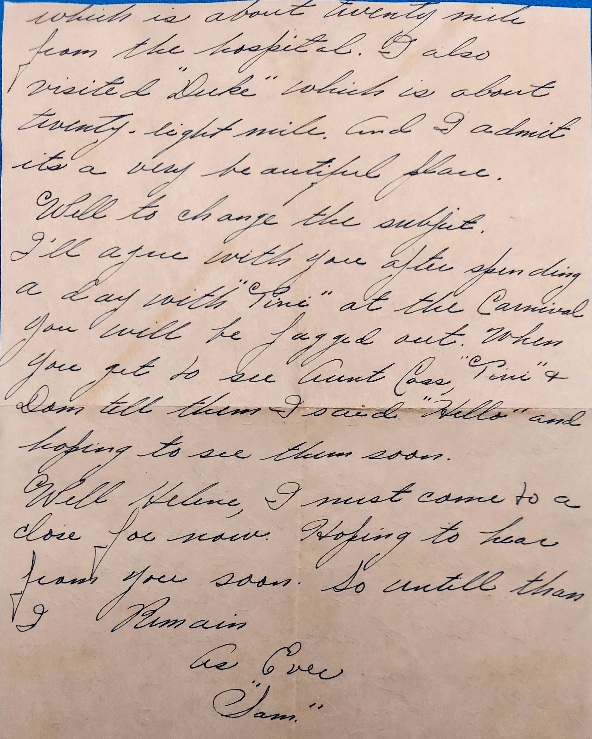 which is about twenty mile
from the hospital. I also
visited "Duke" which is about
twenty-eight mile. And I admit
its a very beautiful place.
Well to change the subjit.
I'll agree with you after spending
a day with "Tini" at the Carnival
you will be fagged out. When
you get to see Aunt Cass, "Tini" &
Dom tell them I said "Hello" and
hoping to see them soon.
Well Helene, I must come to a
close for now. Hoping to hear
from you soon. So untill than
I Remain
As Ever
"Sam."